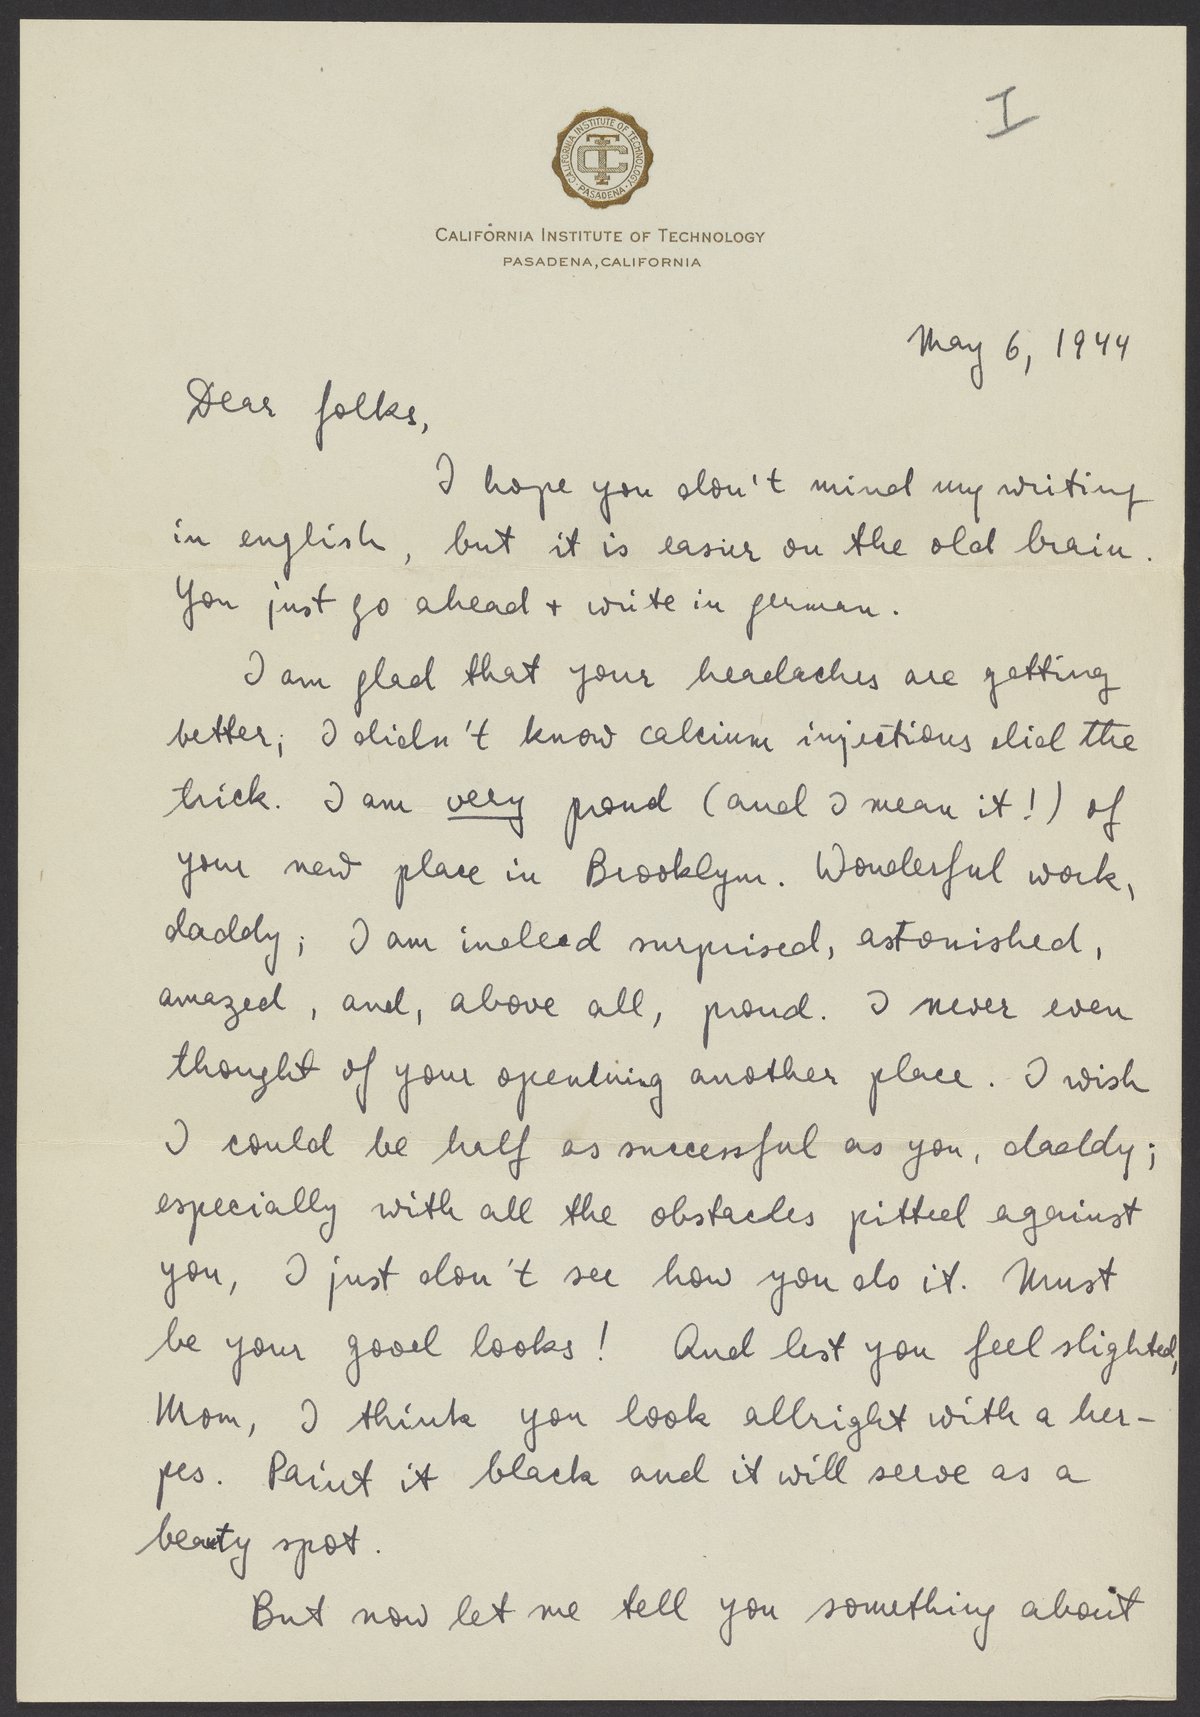 I
CALIFORNIA INSTITUTE OF TECHNOLOGY
PASADENA
CALIFORNIA INSTITUTE OF TECHNOLOGY
PASADENA, CALIFORNIA
May 6, 1944
Dear folks,
I hope you don't mind my writing
in english, but it is easier on the old brain.
You just go ahead + write in german.
I am glad that your headaches are getting
better; I didn't know calcium injections did the
trick. I am very proud (and I mean it!) of
your new place in Brooklyn. Wonderful work,
daddy; I am indeed surprised, astonished,
amazed, and, above all, proud. I never even
thought of your openining another place. I wish
I could be half as successful as you, daddy;
especially with all the obstacles pitted against
you, I just don't see how you do it. Must
be your good looks! And lest you feel slighted,
Mom, I think you look allright with a her-
pes. Paint it black and it will serve as a
beauty spot.
But now let me tell you something about